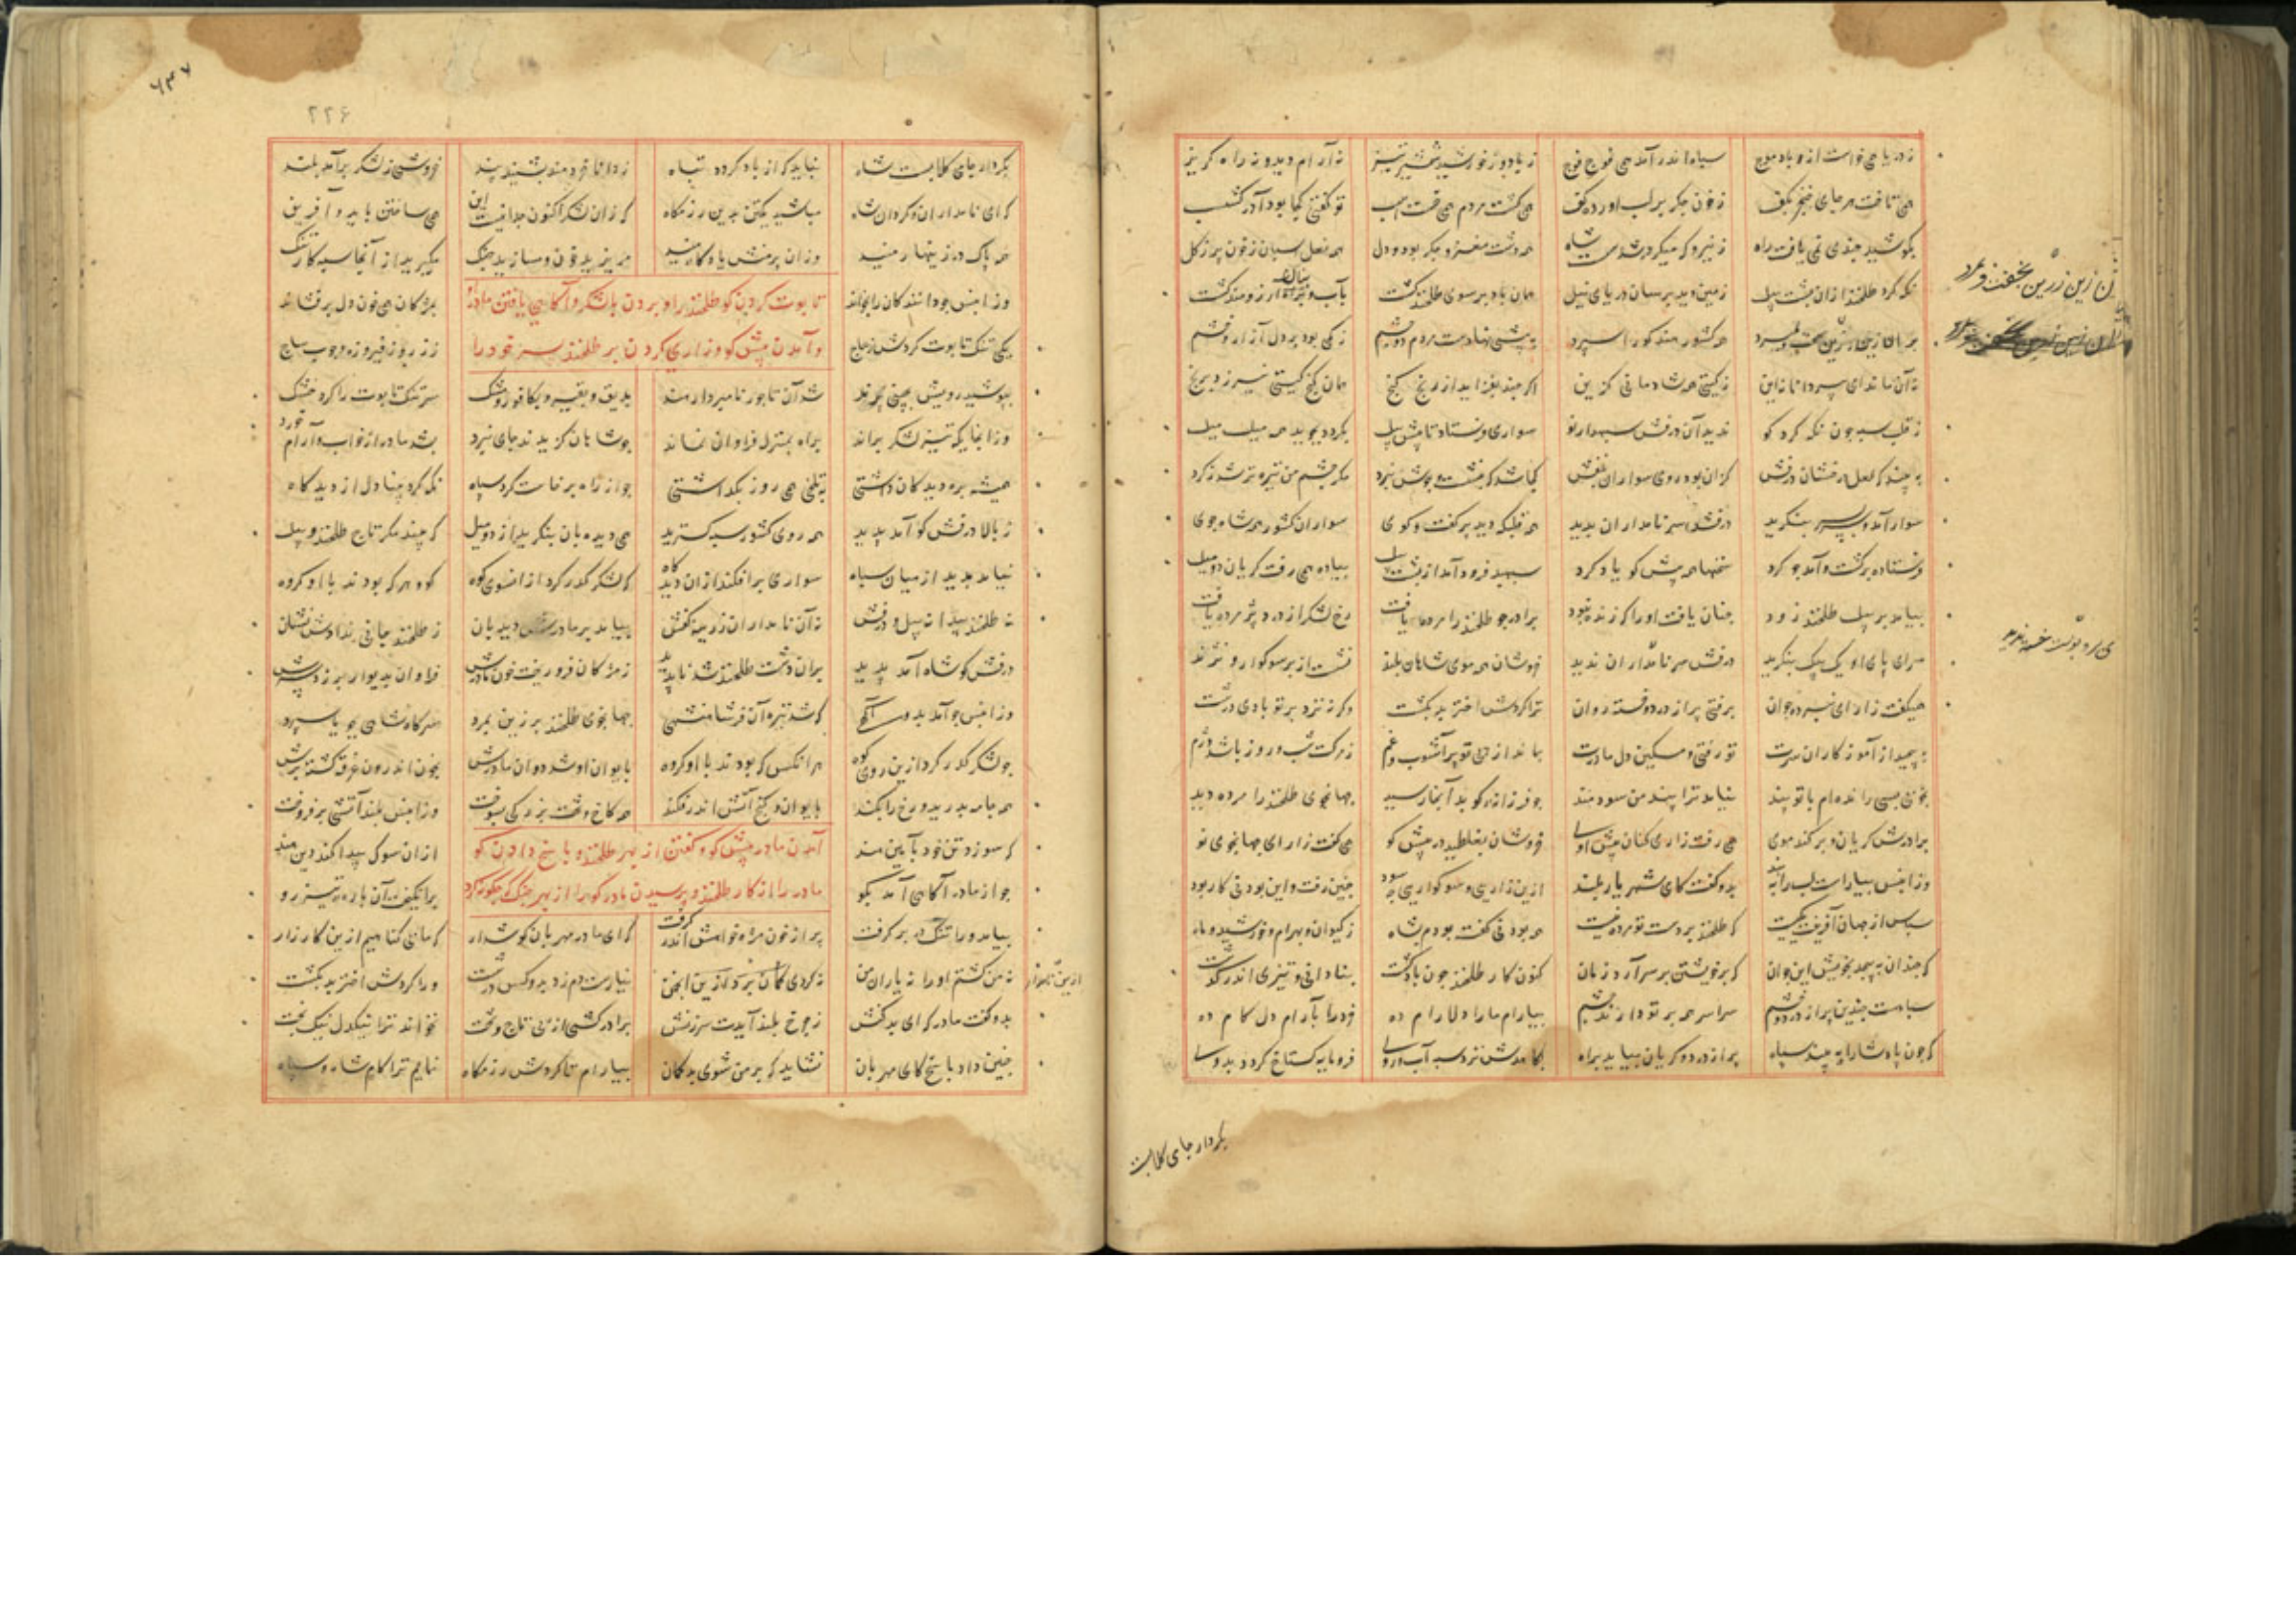 ز دریا همی خواست از باد موج سپاه اندر آمد همی فوج فوج ز باد و ز خورشید و شمشیر تیز نه آرام دید و نه راه گریز
همی تاخت هر جای خنجر بکف ز خون جگر بر لب آورده کف همی کشت مردم همی رفت اسب تو گفتی کجا بود آذر گشسب
همه دشت مغز و جگر بود و دل همه نعل اسبان ز خون پر ز گل
نگه کرد طلخند از آن پشت پیل زمین دید بر سان دریای نیل همان باد بر سوی طلخند گشت بآب و آرزومند گشت
بر آن زین زرین بخفت و بمرد همه کشور هند گو را سپرد به بیشی نهادست مردم دو چشم ز کمی بود بر دل آزار و خشم
نه آن ماند ای پسر دانا نه این ز گیتی همه شادمانی گزین اگر چند بفزاید از رنج گنج همان گنج گیتی نیرزد برنج
ز قلب سپه چون نگه کرد گو ندید آن درفش سپهدار نو سواری فرستاد تا پشت پیل بگردد بجوید همه میل میل
به بیند که لعل درفشان درفش کزان بود روی سواران بنفش کجا شد که بنشست جوش نبرد مگر چشم من تیره‌تر شد ز گرد
سوار آمد و سربسر بنگرید درفش سر نامداران ندید همه قلبگه دید پر گفت و گوی سواران کشور همه شاه جوی
فرستاده برگشت و آمد چو گرد سخنها همه پیش گو یاد کرد سپهبد فرود آمد از پشت پیل پیاده همی رفت گریان دو میل
بیامد بر پیل طلخند زود چنان یافت او را که زنده نبود برادر چو طلخند را مرده یافت رخ لشکر از درد پژمرده یافت
سرای پای او یک بیک بنگرید درفش سر نامداران ندید خروشان همه موی شاهان بکند نشست از برش سوگوار و نژند
همیگفت زار ای نبرده جوان برفتی پر از درد و خسته روان ترا گردش اختر بد بکشت و گرنه نزد بر تو بادی درشت
به پیچید از آموزگاران سرت تو رفتی و مسکین دل مادرت
بخوبی بسی رانده‌ام با تو پند نیامد ترا پند من سودمند چو فرزانه گو بد آنجا رسید جهانجوی طلخند را مرده دید
برادرش گریان و بر کنده موی همی رفت زاری کنان پیش اوی خروشان بغلطید در پیش گو همی گفت زار ای جهانجوی نو
وزان پس بیاراست لب را به پند بدو گفت کای شهریار بلند ازین زاری و سوگواری چه سود چنین رفت و این بودنی کار بود
سپاس از جهان آفرینت یکیست که طلخند بر دست تو مرده نیست همه بودنی گفته بودم بشاه ز کیوان و بهرام و خورشید و ماه
که چندان به پیچد بخویش این جوان که بر خویشتن بر سر آرد زمان کنون کار طلخند چون باد گشت بنادانی و تیزی اندر گذشت
سپاهست چندین پر از درد و خشم سراسر همه بر تو دارند چشم بیارام ما را دلارام ده خرد را بآرام دل کام ده
که چون پادشا را به بیند سپاه پر از درد و گریان بیاید براه بکاهدش نزد سپه آب روی فرومایه گستاخ گردد بدوی
زین زرین بخفت و بمرد
بکردار جای گلابست
۲۲۶
بکردار جای گلابست شاه نباید که از باد گردد تباه ز دانا خردمند بشنید پند خروشی ز لشکر برآمد بلند
که ای نامداران و گردان شاه مباشید یکتن بدین رزمگاه که زان لشکر اکنون جدا نیست این همی ساختن باید و آفرین
همه پاک در زینهار منید وزان پرمنش یادگار منید مریزید خون و مسازید جنگ
وزان پس چو دانندگان را بخواند تابوت کردن گو طلخند را و بردن با لشکر و آگاهی یافتن مادر بمژگان همی خون دل برفشاند
یکی تنگ تابوت کردش ز عاج و آمدن پیش گو و زاری کردن بر طلخند پسر خود را ز زر و ز فیروزه و چوب ساج
بپوشید رویش بچینی پرند شد آن تاجور نامبردار هند بدبق و بقیر و بکافور و مشک سر تنگ تابوت را کرد خشک
وز آنجایگه تیز لشکر براند براه بمنزل فراوان نماند چو شاهان گزیدند جای نبرد بشد مادر از خواب و آرام و خورد
همیشه بره دیده‌بان داشتی بتلخی همی روز بگذاشتی چو از راه برخاست گرد سپاه نگه کرد بینادل از دیدگاه
ز بالا درفش گو آمد پدید همه روی کشور سپه گسترید همی دیده‌بان بنگرید از دو میل که بیند مگر تاج طلخند و پیل
نیامد پدید از میان سپاه سواری برافکند از آن دیدگاه که لشکر گذر کرد از آنسوی کوه گو و هر که بودند با او گروه
نه طلخند پیدا نه پیل و درفش نه آن نامداران زرینه کفش بیامد بر مادرش دیدبان ز طلخند جائی ندادش نشان
درفش گو شاه آمد پدید بران دشت طلخند شد ناپدید ز مژگان فرو ریخت خون مادرش فراوان بدیوار بر زد سرش
وزان پس چو آمد بدو آگهی که شد تیره آن فر شاهنشهی جهانجوی طلخند بر زین بمرد سر گاه شاهی بگو سپرد
چو لشکر گذر کرد ازین روی کوه هرانکس که بودند با او گروه بایوان او شد دوان مادرش بخون اندرون غرقه گشته برش
همه جامه بدرید و رخ را بکند بایوان و گنج آتش اندر فکند همه کاخ و تخت بزرگی بسوخت وزان پس بلند آتشی برفروخت
که سوزد تن خود بآیین هند آمدن مادر پیش گو و گفتن از بهر طلخند و پاسخ دادن گو ازان سوگ پیدا کند دین هند
چو از مادر آگاهی آمد بگو مادر را از کار طلخند و پرسیدن مادر گو را از بهر جنگ که چگونه کرد برانگیخت آن باره تیزرو
بیامد ورا تنگ در بر گرفت پر از خون مژه خواهش اندر گرفت که ای مادر مهربان گوش دار که ما بی گناهیم ازین کارزار
نه من کشتم او را نه یاران من نیارست دم زد بدو کس درشت ورا گردش اختر بد بکشت
بدو گفت مادر که ای بدکنش ز چرخ بلند آیدت سرزنش برادر کشی از پی تاج و تخت نخواند ترا نیکدل نیکبخت
چنین داد پاسخ که ای مهربان نشاید که بر من شوی بدگمان بیارام تا گردش رزمگاه نمایم ترا کار شاه و سپاه